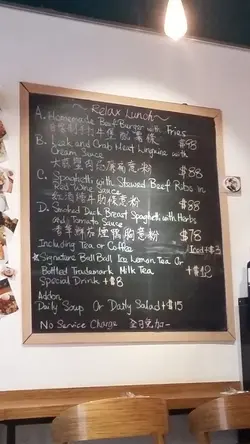 ~ Relax Lunch ~
A. Homemade Beef Burger with Fries
自家制手打牛堡配薯條 $98
B. Leek and Crab Meat Linguine with
Cream Sauce
大蒜蟹肉忌廉扁意粉 $88
C. Spaghetti with Stewed Beef Ribs in
Red Wine Sauce
紅酒燴牛肋條意粉 $88
D. Smoked Duck Breast Spaghetti with Herbs
and Tomato Sauce
香草鮮茄煙鴨胸意粉 $78
Including Tea or Coffee
Iced +$3
*Signature Ball Ball Ice Lemon Tea Or
Bottled Trademark Milk Tea +$12
Special Drink +$8
Addon
Daily Soup Or Daily Salad +$15
No Service Charge